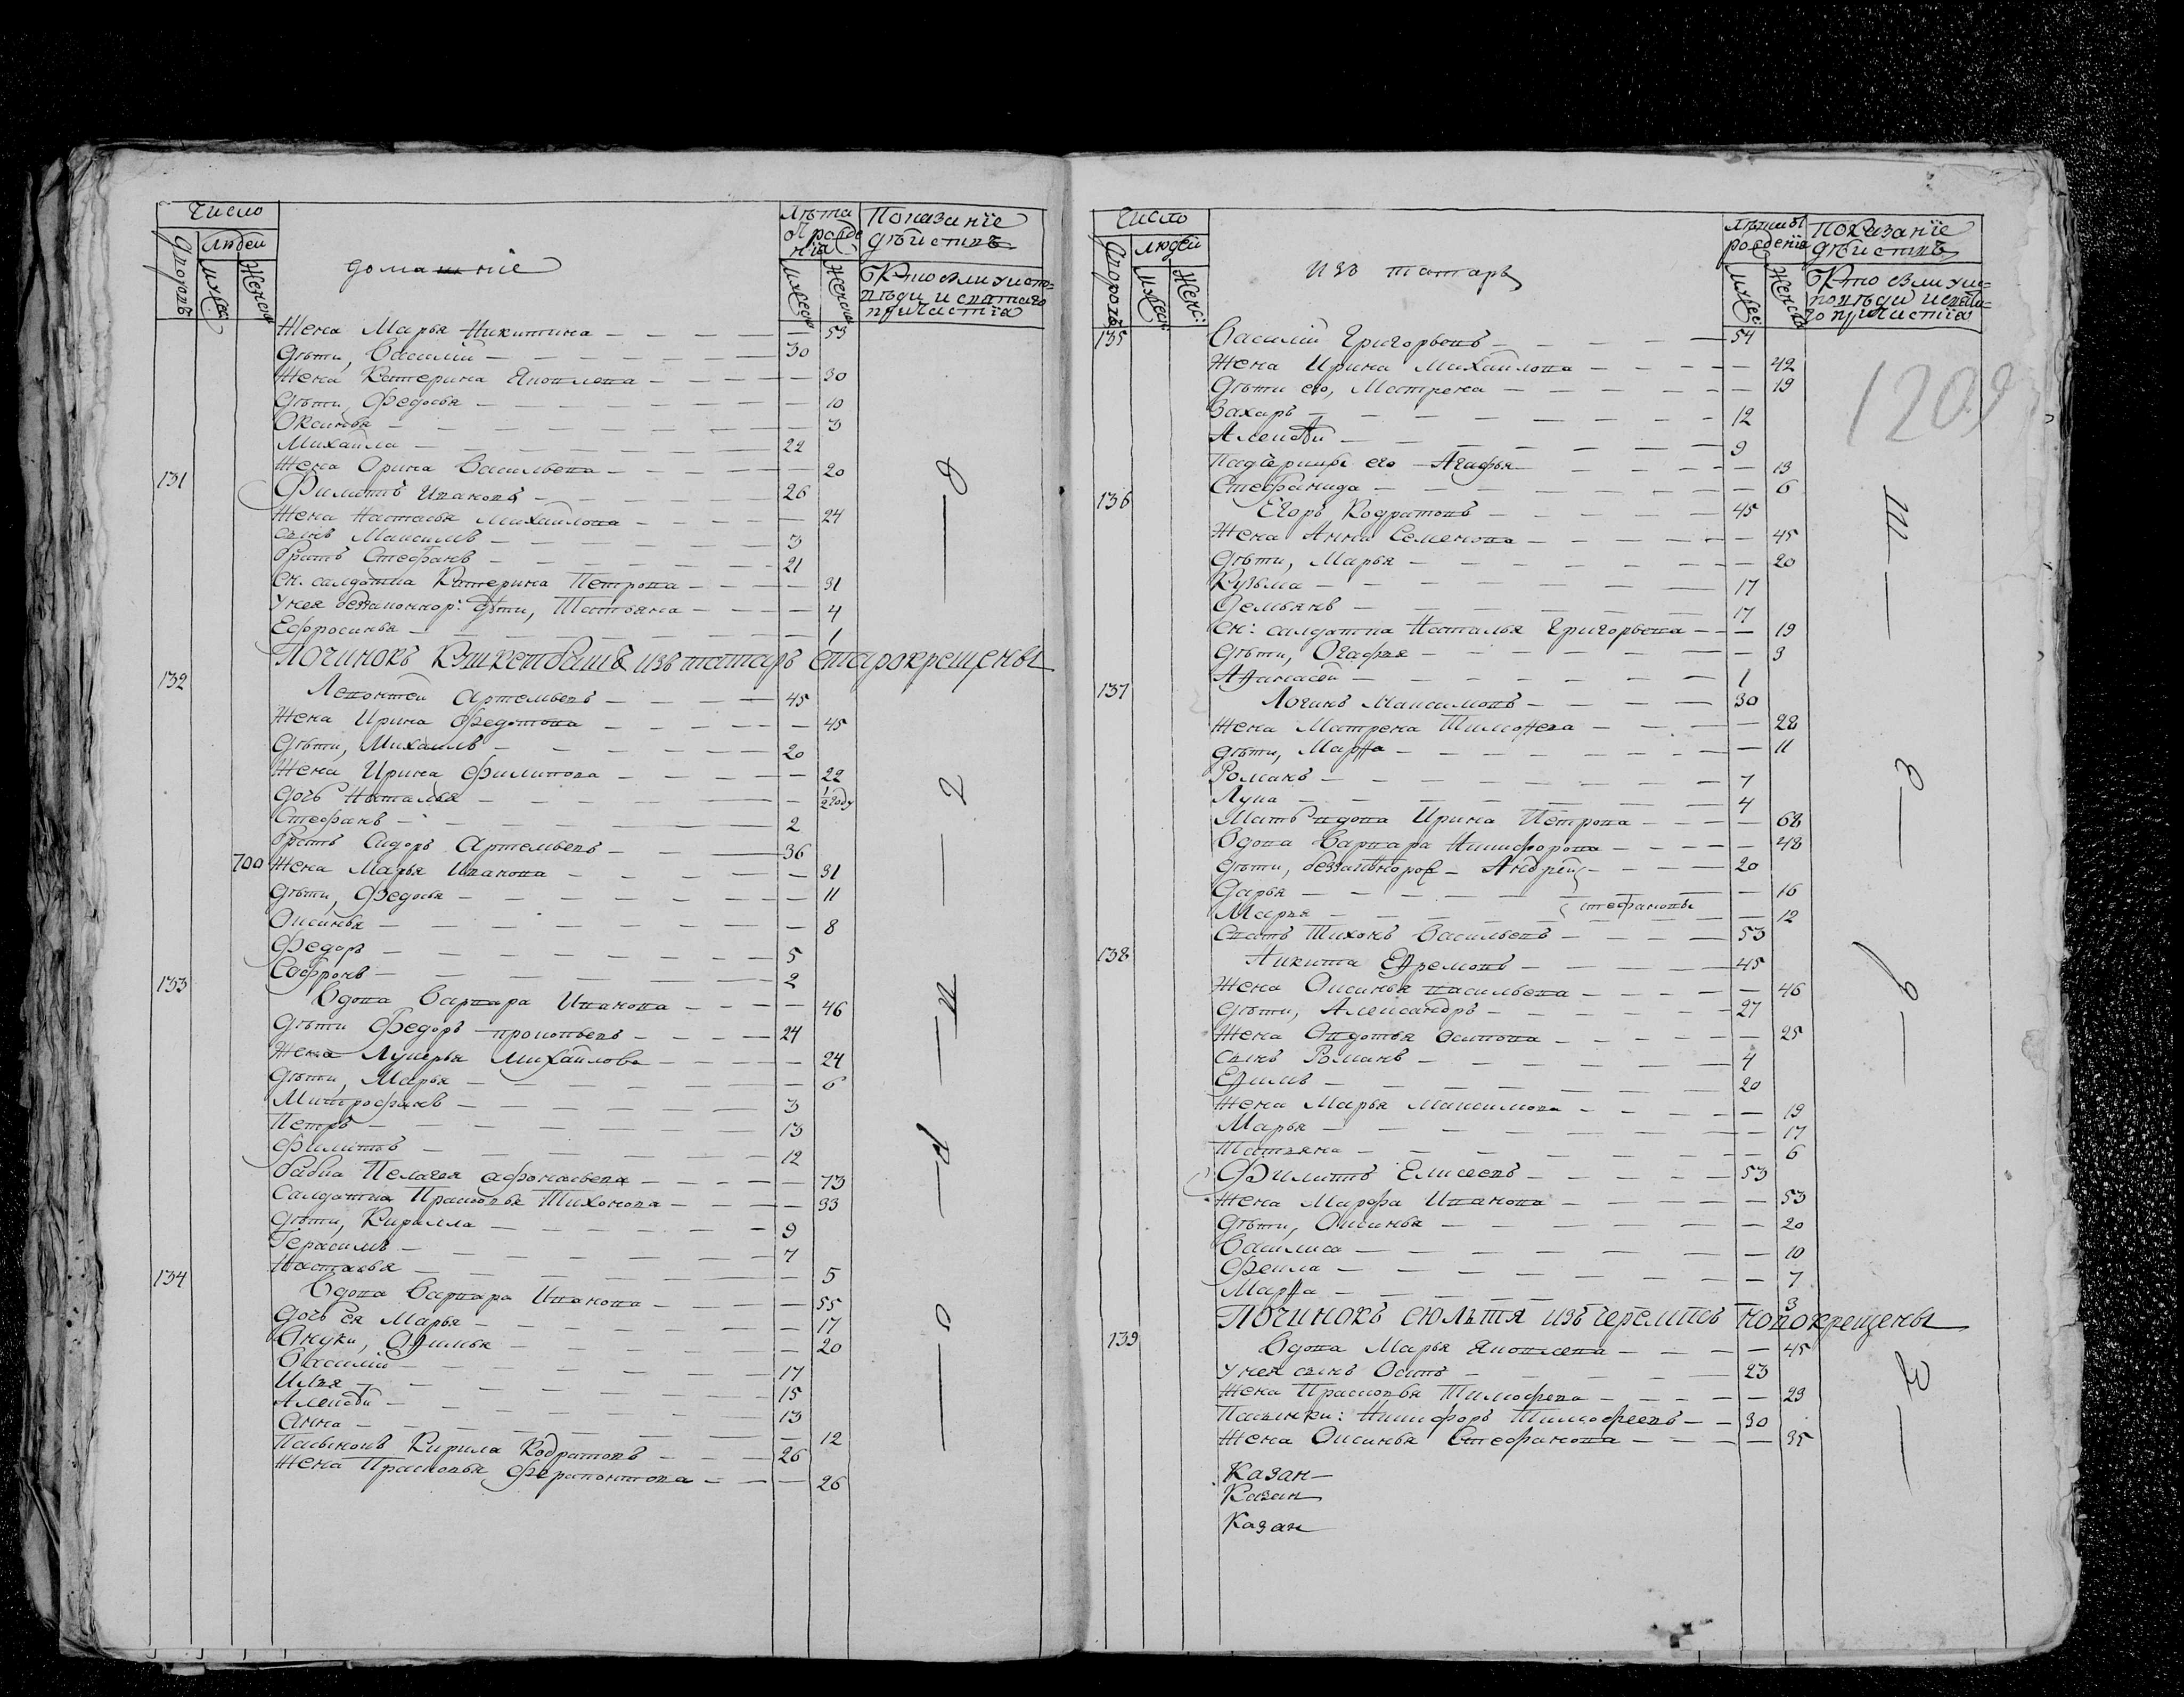 Число
Людей
Дворовъ
Мужес:
Женска
домашніе
Лѣта
отрожде
нія
Мужеска
Женска
Показаніе
дѣйствъ
Кто былъ уиспо=
вѣди и святаго
причастія
Жена Марья Никитина — 53
Дѣти, Василій — 30
Жена Катерина Яковлева — 30
Дѣти, Федосья — 10
Оксинья — 3
Михайла — 22
Жена Орина Васильева — 20
131 Филипъ Ивановъ — 26
Жена Настасья Михайлова — 24
сынъ Максимъ — 3
братъ Стефанъ — 21
Сн. салдатка Катерина Петрова — 31
у нея беззаконнор: дѣти, Татьяна — 4
Ефросинья — 1
Починокъ Кушкетбашъ изъ татаръ старокрещены
132 Левонтей Артемьевъ — 45
Жена Ирина Федотова — 45
Дѣти, Михаилъ — 20
Жена Ирина Филипова — 22
Дочь Наталья — 1/2 году
Стефанъ — 2
братъ Сидоръ Артемьевъ — 36
700 Жена Марья Иванова — 31
Дѣти, Федосья — 11
Оксинья — 8
Федоръ — 5
Сафронъ — 2
133 Вдова Варвара Иванова — 46
Дѣти Федоръ Прокопьевъ — 24
Жена Лукерья Михайлова — 24
Дѣти, Марья — 6
Митрофанъ — 3
Петръ — 13
Филипъ — 12
бабка Пелагея Афонасьева — 73
Салдатка Прасковья Тихонова — 33
Дѣти, Кирилла — 9
Герасимъ — 7
Настасья — 5
134 Вдова Варвара Иванова — 55
Дочь ея Марья — 17
Внуки, Офимья — 20
Василій — 17
Илья — 15
Алексѣй — 13
Анна — 12
Пасынокъ Кирила Кодратовъ — 26
Жена Прасковья Ферапонтова — 26
Число
Людей
Дворовъ
Мужес:
Женс:
изъ татаръ
Лѣты
рожденія
Мужес:
Женска
Показаніе
дѣйствъ
Кто былъ уис=
повѣди исвята=
го причастія
1209
135 Василій Григорьевъ — 54
Жена Ирина Михайлова — 42
Дѣти его, Матрена — 19
Захаръ — 12
Алексѣй — 9
Падчерицы его Агафья — 13
Стефанида — 6
136 Егоръ Кодратовъ — 45
Жена Анна Семенова — 45
Дѣти, Марья — 20
Кузьма — 17
Демьянъ — 17
сн: салдатка Наталья Григорьева — 19
Дѣти, Огафья — 3
Аѳанасей — 1
137 Логинъ Максимовъ — 30
Жена Матрена Тимоѳева — 28
дѣти, Марѳа — 11
Романъ — 7
Лука — 4
Мать вдова Ирина Петрова — 68
Вдова Варвара Никифорова — 48
Дѣти, беззаконорож Андрей — 20
Дарья — 16
Стефановы
Марья — 12
Сватъ Тихонъ Васильевъ — 53
138 Никита Еѳремовъ — 45
Жена Оксинья Васильева — 46
Дѣти, Александръ — 27
Жена Овдотья Осипова — 25
сынъ Романъ — 4
Еѳимъ — 20
Жена Марья Максимова — 19
Марья — 17
Татьяна — 6
Филипъ Елисеевъ — 53
Жена Марфа Иванова — 53
Дѣти, Оксинья — 20
Василиса — 10
Фекла — 7
Марѳа — 3
Починокъ Сюльтя изъ черемисъ новокрещены
139 Вдова Марья Яковлева — 45
у нея сынъ Осипъ — 23
Жена Прасковья Тимофева — 23
Пасынки: Никифоръ Тимофеевъ — 30
Жена Оксинья Стефанова — 35
Казан
Казан
Казан